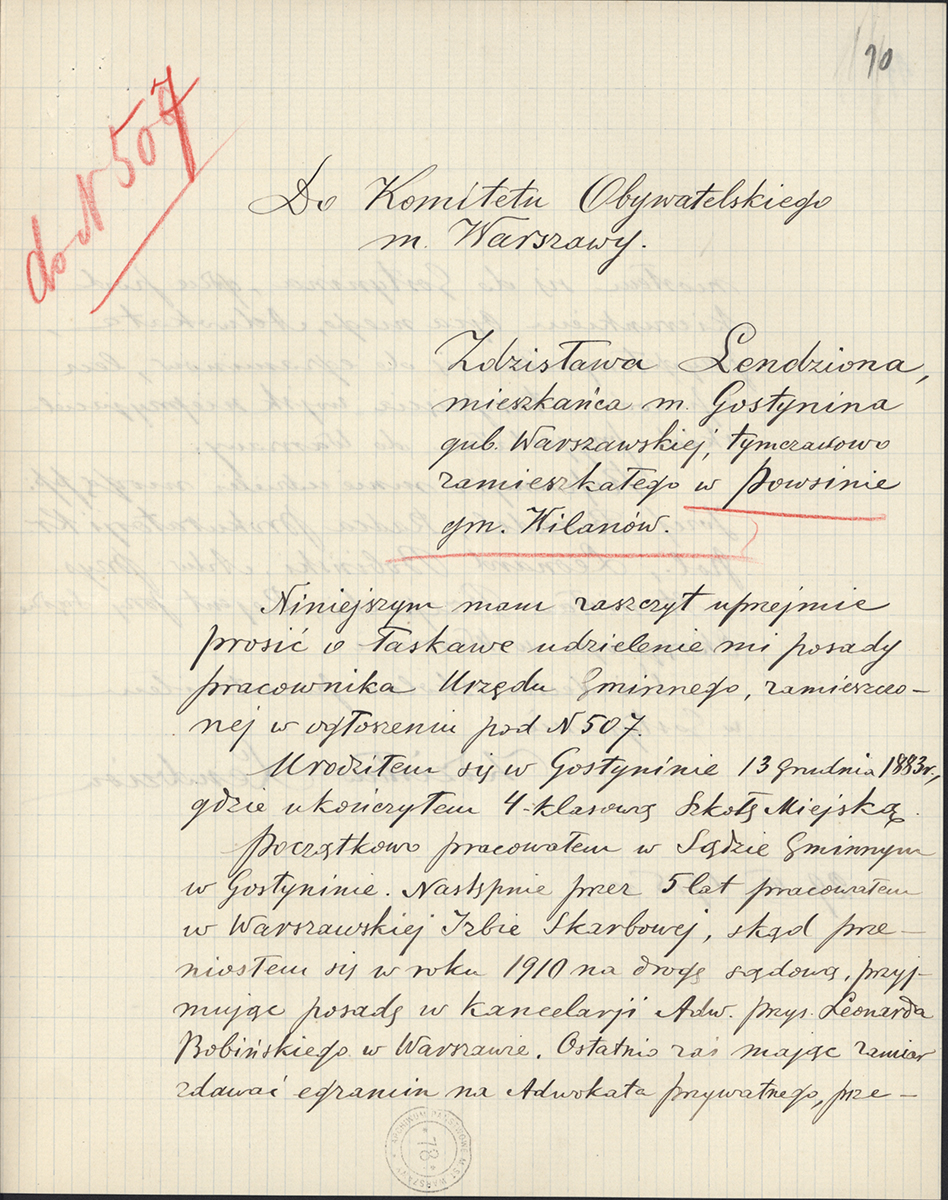 10
do N 507
Do Komitetu Obywatelskiego
m. Warszawy.
Zdzisława Lendziona,
mieszkańca m. Gostynina
gub. Warszawskiej, tymczasowo
zamieszkałego w Powsinie
gm. Wilanów.
Niniejszym mam zaszczyt uprzejmie
prosić o łaskawe udzielenie mi posady
pracownika Urzędu Gminnego, zamieszczo-
nej w ogłoszeniu pod N 507.
Urodziłem się w Gostyninie 13 grudnia 1883 r.,
gdzie ukończyłem 4-klasową Szkołę Miejską.
Początkowo pracowałem w Sądzie Gminnym
w Gostyninie. Następnie przez 5 lat pracowałem
w Warszawskiej Izbie Skarbowej, skąd prze-
niosłem się w roku 1910 na drogę sądową, przyj-
mując posadę w kancelarji Adw. przys. Leonarda
Bobińskiego w Warszawie. Ostatnio zaś mając zamiar
zdawać egzamin na Adwokata prywatnego, prze-
ARCHIWUM PAŃSTWOWE M. ST. WARSZAWY
* 78 *